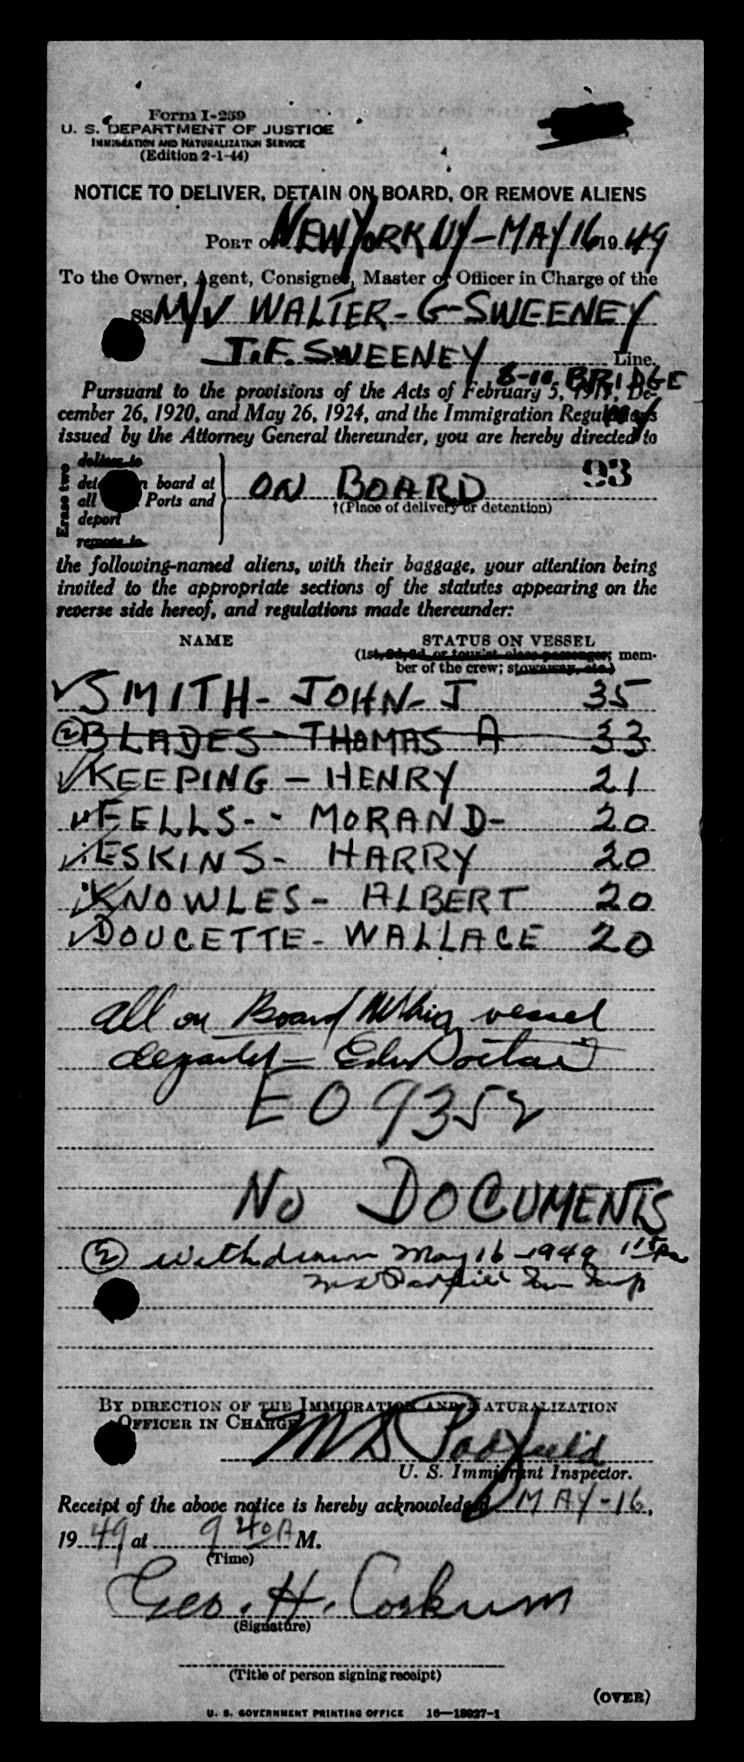 Form I-259
U. S. DEPARTMENT OF JUSTICE
IMMIGRATION AND NATURALIZATION SERVICE
(Edition 2-1-44)
NOTICE TO DELIVER, DETAIN ON BOARD, OR REMOVE ALIENS
PORT OF NEW YORK NY - MAY 16 19 49
To the Owner, Agent, Consignee, Master or Officer in Charge of the
SS M/V WALTER-G-SWEENEY
J.F. SWEENEY Line.
8-10 BRIDGE
Pursuant to the provisions of the Acts of February 5, 1917, De-
cember 26, 1920, and May 26, 1924, and the Immigration Regulations
issued by the Attorney General thereunder, you are hereby directed to
Erase two
deliver to
detain on board at
all Ports and
deport
remove to
ON BOARD
93
†(Place of delivery or detention)
the following-named aliens, with their baggage, your attention being
invited to the appropriate sections of the statutes appearing on the
reverse side hereof, and regulations made thereunder:
NAME STATUS ON VESSEL
(1st, 2d, 3d, or tourist class passenger; mem-
ber of the crew; stowaway, etc.)
✓ SMITH- JOHN-J 35
② BLADES - THOMAS A 33
✓ KEEPING - HENRY 21
✓ FELLS- - MORAND- 20
✓ ESKINS- HARRY 20
✓ KNOWLES- ALBERT 20
✓ DOUCETTE- WALLACE 20
All on Board vessel
departed -
EO 9352
NO DOCUMENTS
② withdrawn May 16-1949 115 PM
BY DIRECTION OF THE IMMIGRATION AND NATURALIZATION
OFFICER IN CHARGE
M D Padfield
U. S. Immigrant Inspector.
Receipt of the above notice is hereby acknowledged MAY-16,
19 49 at 9 40 A M.
(Time)
Geo. H. Corkum
(Signature)
(Title of person signing receipt)
(OVER)
U. S. GOVERNMENT PRINTING OFFICE 16—18927-1